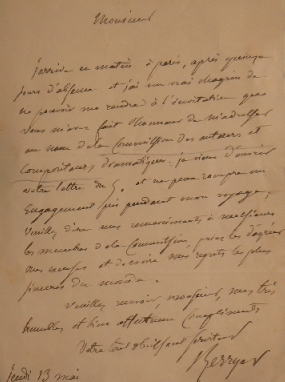 Monsieur
J'arrive ce matin à paris, après quinze
jours d'absence et j'ai un vrai chagrin de
ne pouvoir me rendre à l'invitation que
vous m'avez fait l'honneur de m'adresser
au nom de la Commission des auteurs et
Compositeurs dramatiques. je viens d'ouvrir
votre lettre du 5. et ne peux rompre un
Engagement pris pendant mon voyage.
Veuillez dire mes remerciements à messieurs
les membres de la Commission,
mes excuses et de croire mes regrets les plus
sincères du monde.
Veuillez recevoir, monsieur, mes très
humbles et bien affectueux compliments
Votre tout serviteur
Berryer
Jeudi 13 mai